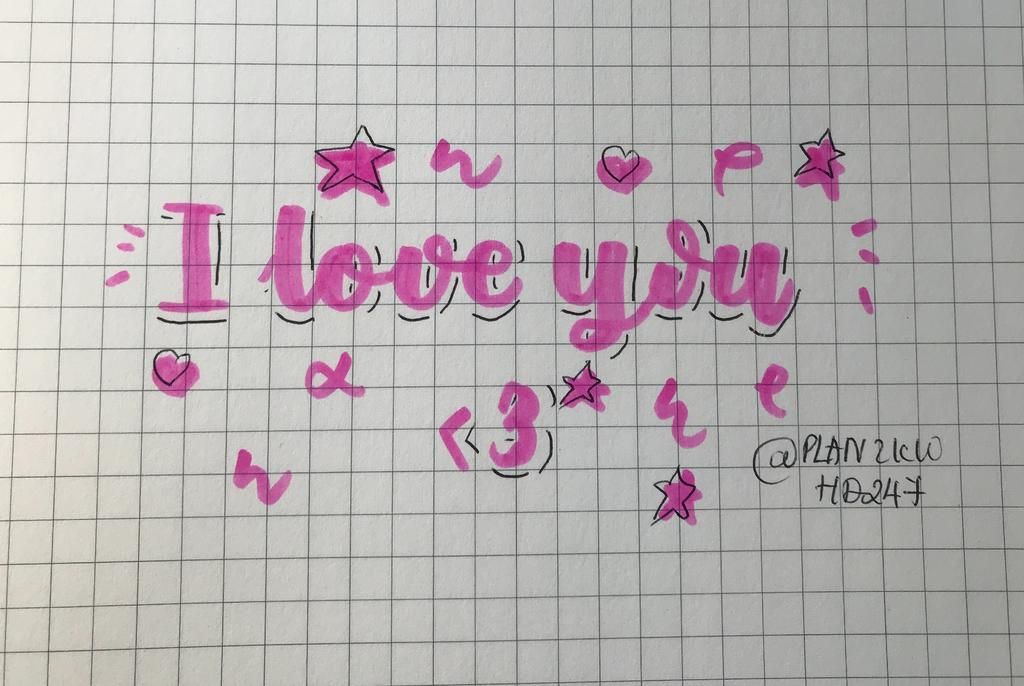 I love you
<3
@PLANZICIO
HD247